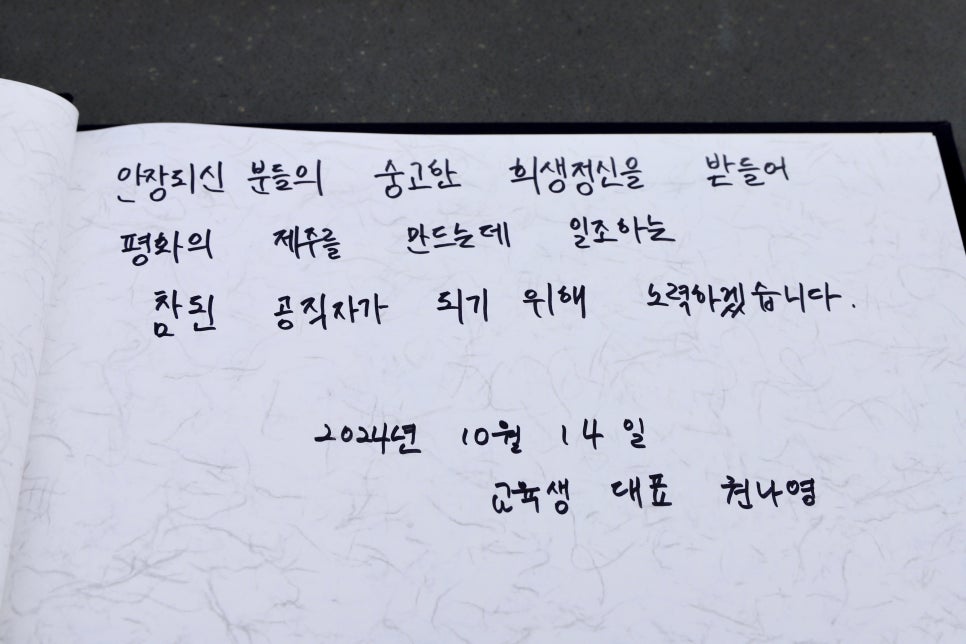 안장되신 분들의 숭고한 희생정신을 받들어
평화의 제주를 만드는데 일조하는
참된 공직자가 되기 위해 노력하겠습니다.
2024년 10월 14일
교육생 대표 권나영